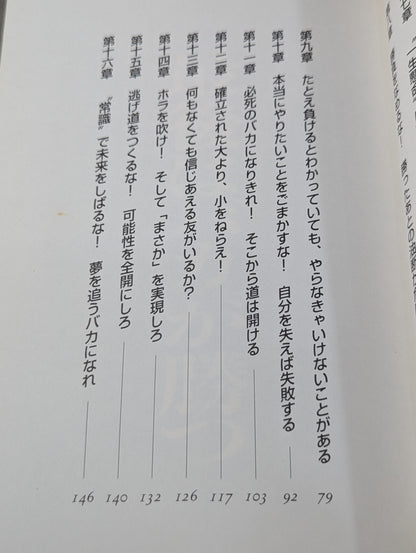 第九章 たとえ負けるとわかっていても、やらなきゃいけないことがある 79
第十章 本当にやりたいことをごまかすな! 自分を失えば失敗する 92
第十一章 必死のバカになりきれ! そこから道は開ける 103
第十二章 確立された大より、小をねらえ! 117
第十三章 何もなくても信じあえる友がいるか? 126
第十四章 ホラを吹け! そして「まさか」を実現しろ 132
第十五章 逃げ道をつくるな! 可能性を全開にしろ 140
第十六章 〝常識〟で未来をしばるな! 夢を追うバカになれ 146